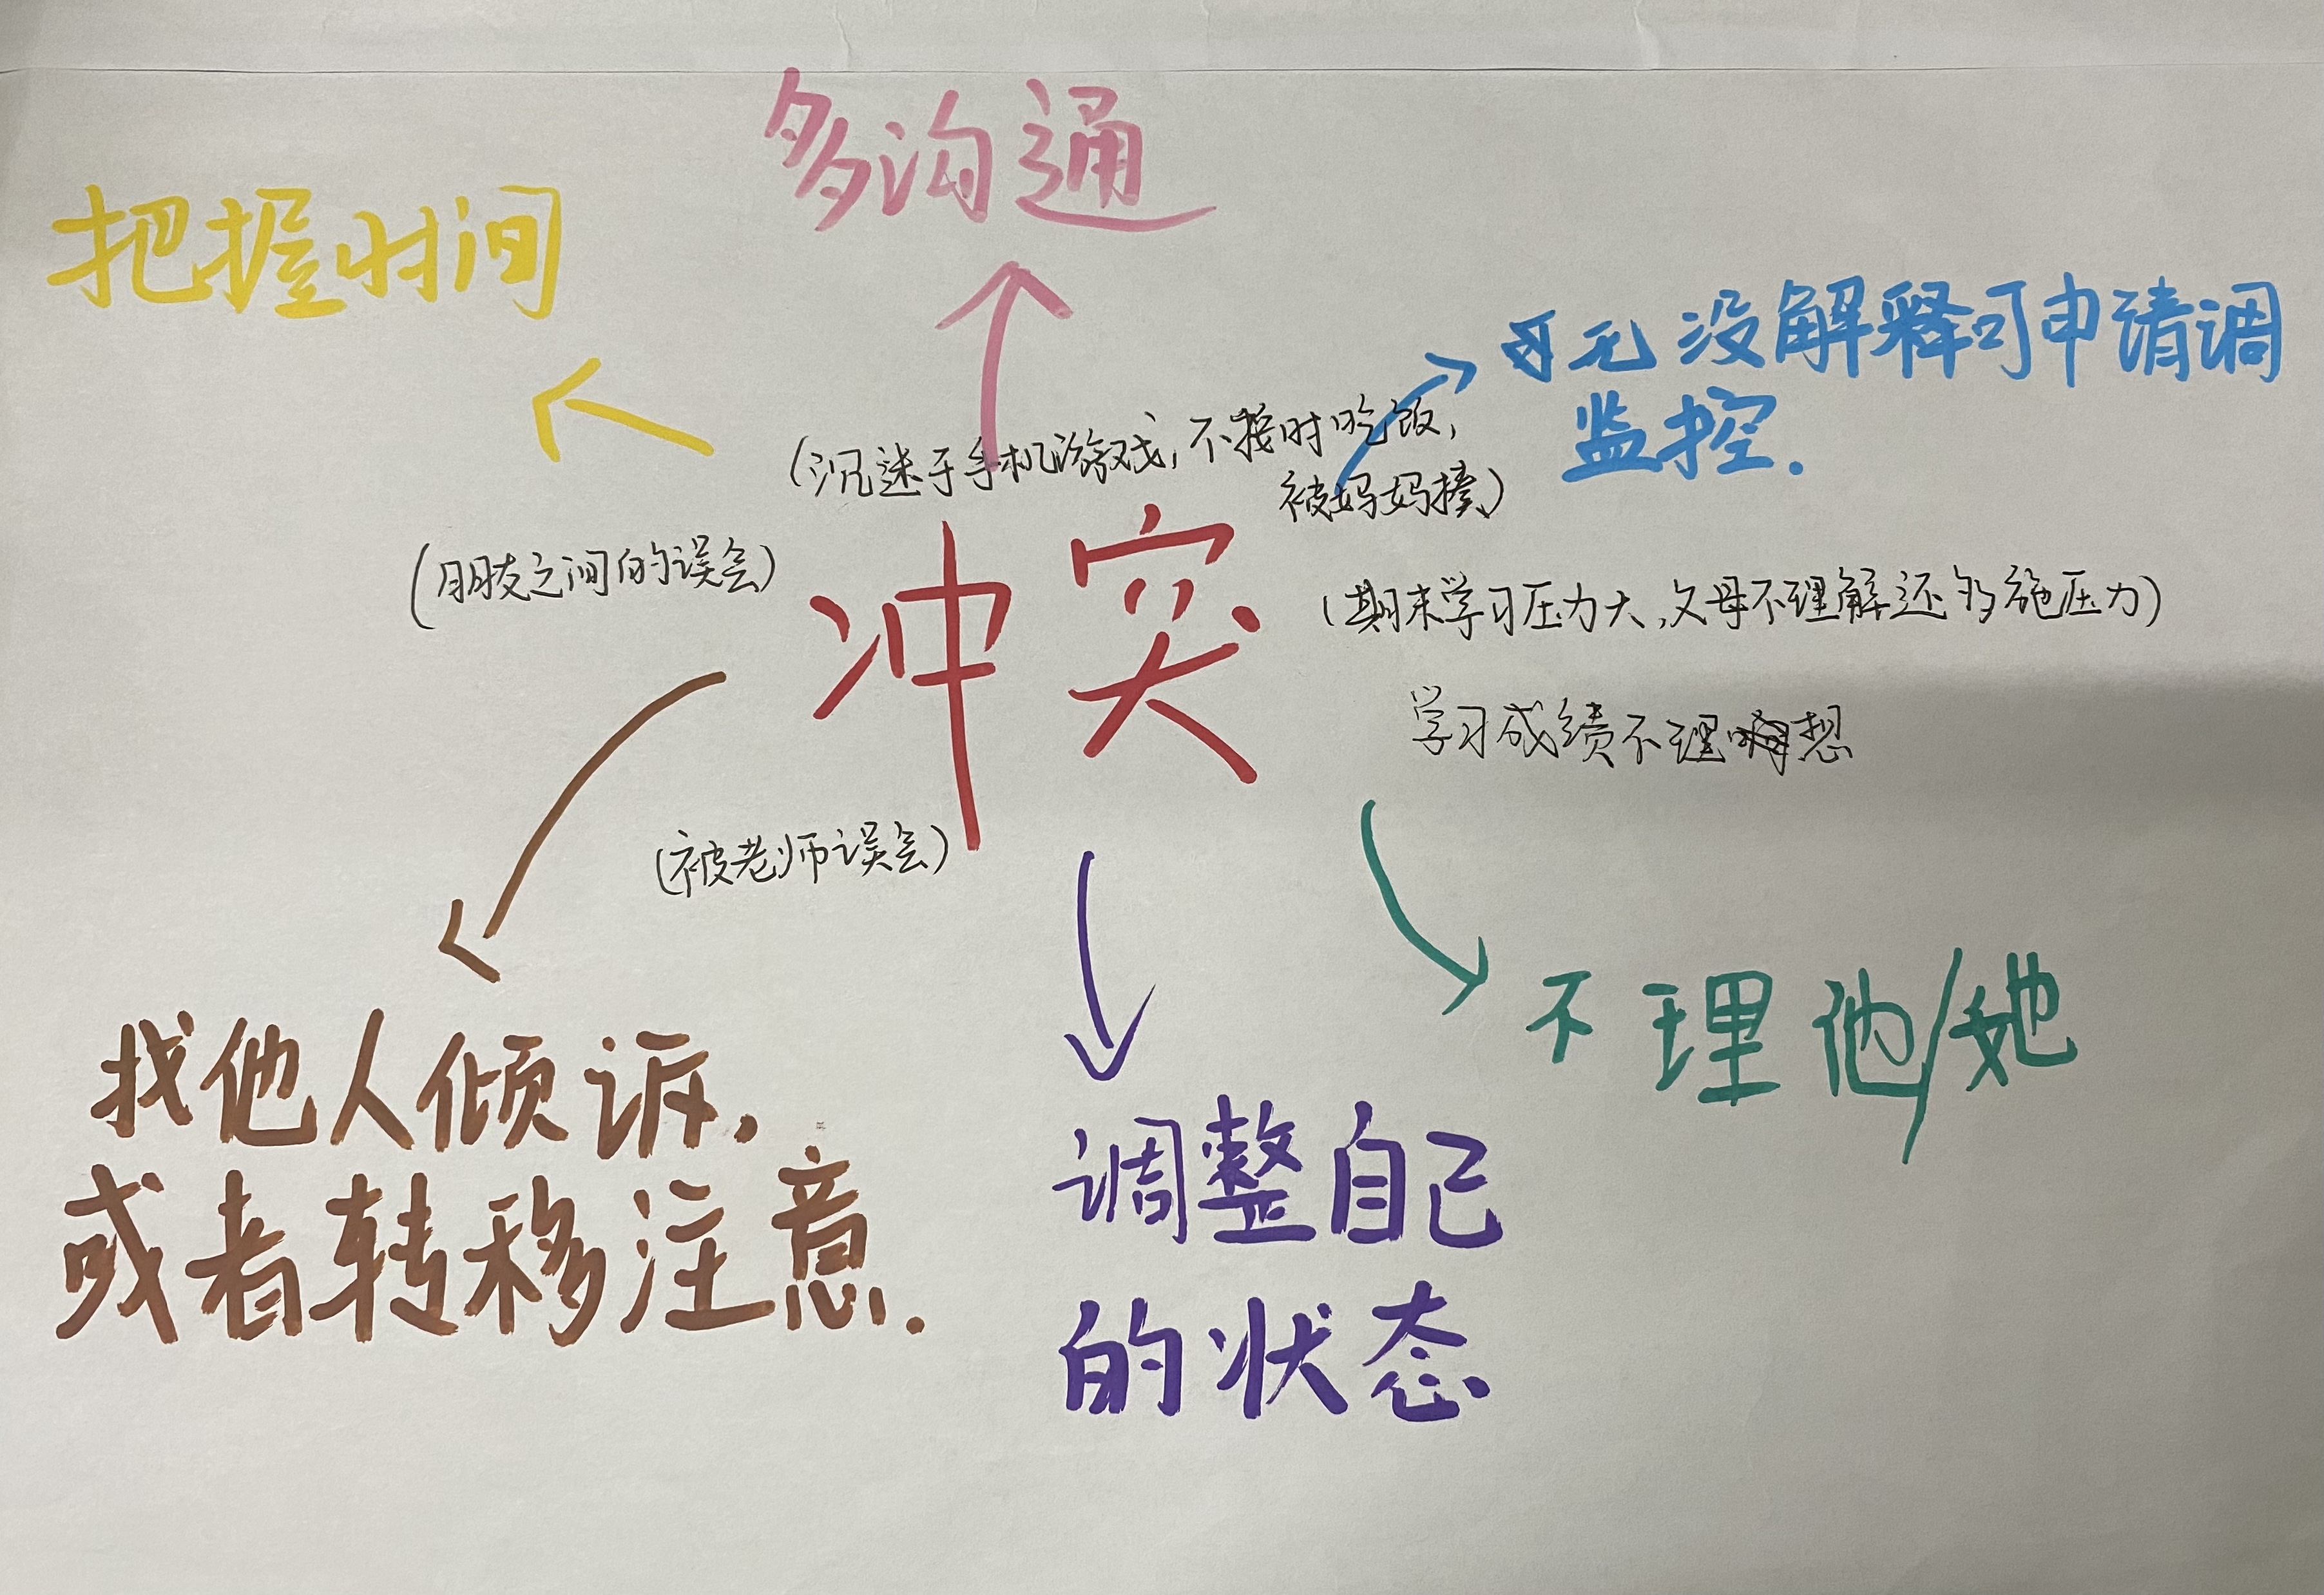 多沟通
把握时间
无没解释可申请调
监控.
(沉迷于手机游戏,不按时吃饭,
被妈妈揍)
(朋友之间的误会)
冲突
(期末学习压力大,父母不理解还多施压力)
学习成绩不理想
(被老师误会)
不理他/她
找他人倾诉,
或者转移注意.
调整自己
的状态